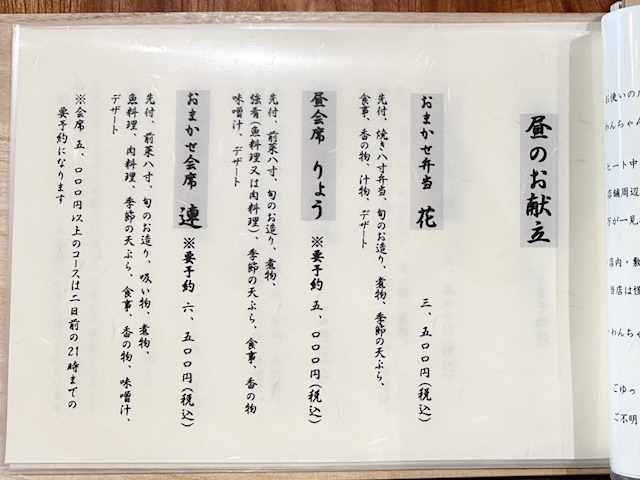 昼のお献立
おまかせ弁当 花 三、五〇〇円(税込)
先付、焼き八寸弁当、旬のお造り、煮物、季節の天ぷら、
食事、香の物、汁物、デザート
昼会席 りょう ※要予約 五、〇〇〇円(税込)
先付、前菜八寸、旬のお造り、煮物、
強肴(魚料理又は肉料理)、季節の天ぷら、食事、香の物
味噌汁、デザート
おまかせ会席 連 ※要予約 六、五〇〇円(税込)
先付、前菜八寸、旬のお造り、吸い物、煮物、
魚料理、肉料理、季節の天ぷら、食事、香の物、味噌汁、
デザート
※会席 五、〇〇〇円以上のコースは二日前の21時までの
要予約になります
お使いの
わんちゃん
ヒート中
店舗周辺
万が一見
店内・敷
当店は怪
わんちゃ
ごゆっ
ご不明